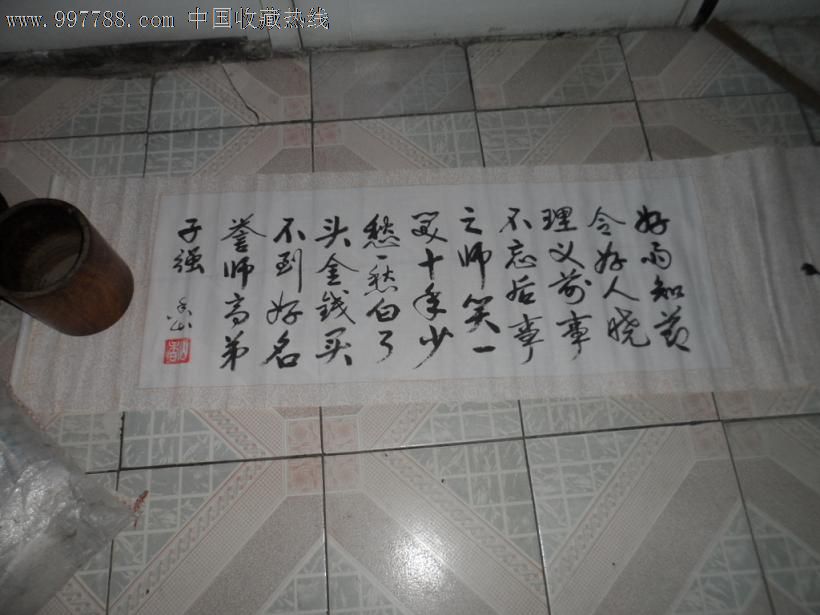 www.997788.com 中国收藏热线
好雨知节
令好人晓
理义前事
不忘后事
之师笑一
笑十年少
愁一愁白了
头金钱买
不到好名
誉师高弟
子强